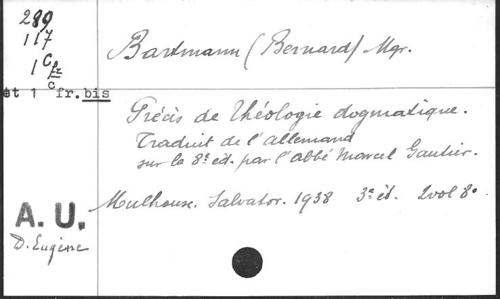 289
117
1 C fr
c
et 1 fr. bis
Bartmann (Bernard) Mgr.
Précis de Théologie dogmatique.
Traduit de l'allemand
sur la 8e éd. par l'abbé Marcel Gautier.
Mulhouse. Salvator. 1938 3e éd. 2 vol 8°
A. U.
D. Eugène